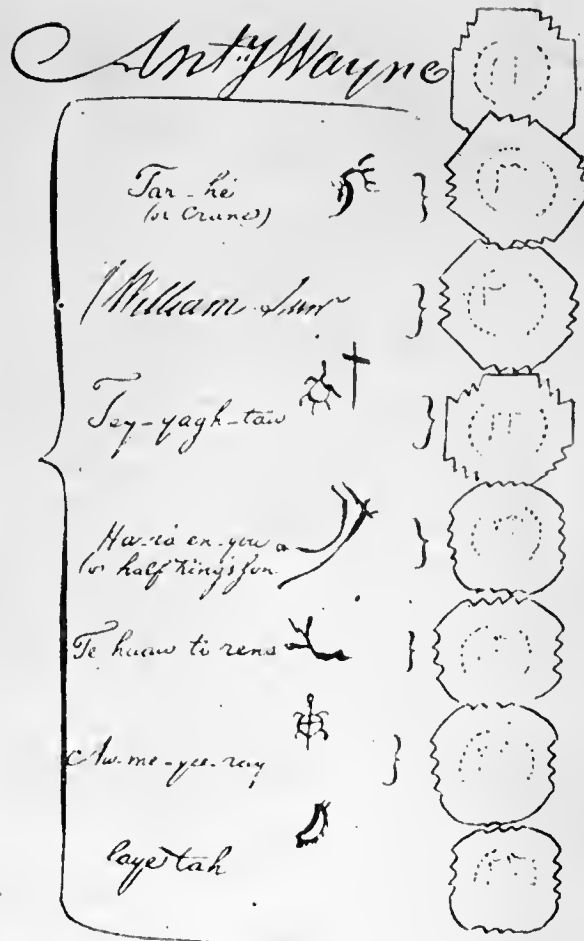 Anty Wayne
Tar-hè
(or Crane)
William Surr
Tey-yagh-taw
Ha-ro en-you
(or half Kings son
Te haaw ti rens
Aw-me-yee-ray
Faye tah